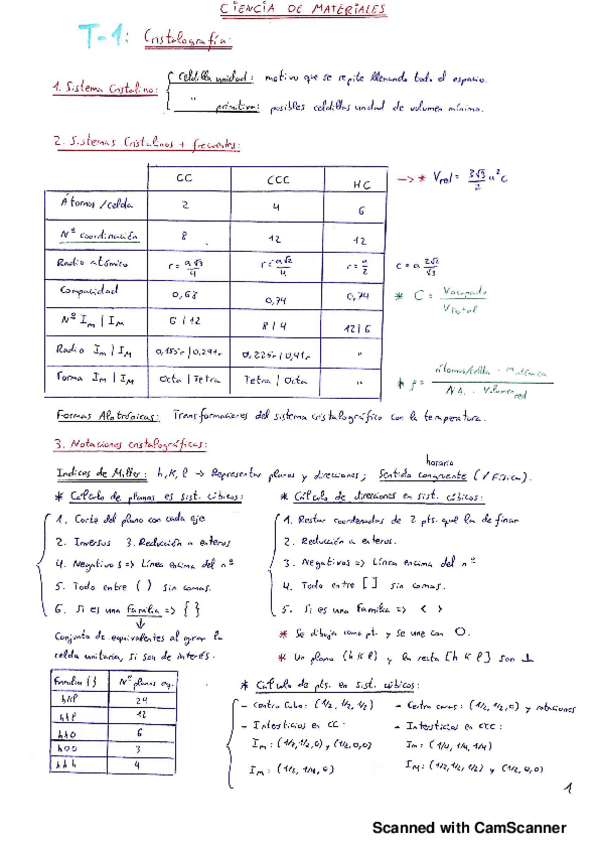 CIENCIA DE MATERIALES
T-1: Cristalografía:
1. Sistema Cristalino: celdilla unidad: motivo que se repite llenando todo el espacio.
" primitiva: posibles celdillas unidad de volumen mínimo.
2. Sistemas Cristalinos + frecuentes:
CC CCC HC
Átomos/celda 2 4 6
Nº coordinación 8 12 12
Radio atómico r = a√3/4 r = a√2/4 r = a/2
Compacidad 0,68 0,74 0,74
Nº Im | IM 6 | 12 8 | 4 12 | 6
Radio Im | IM 0,155r | 0,291r 0,225r | 0,41r "
Forma Im | IM Octa | Tetra Tetra | Octa "
—> * Vred = 3√3/2 a²c
c = a 2√2/√3
* C = Vocupado/Vtotal
* ρ = átomos/celda · Matómica / NA · Volumen red
Formas Alotrópicas: Transformaciones del sistema cristalográfico con la temperatura.
3. Notaciones cristalográficas:
horario
Indices de Miller: h, K, l → Representar planos y direcciones; Sentido congruente (≠ Física).
* Cálculo de planos es sist. cúbicos:
1. Corte del plano con cada eje
2. Inversos 3. Reducción a enteros
4. Negativos => Línea encima del nº
5. Todo entre ( ) sin comas.
6. Si es una familia => { }
Conjunto de equivalentes al girar la
celda unitaria, si son de interés.
* Cálculo de direcciones en sist. cúbicos:
1. Restar coordenadas de 2 pts. que la definan
2. Reducción a enteros.
3. Negativos => Línea encima del nº
4. Todo entre [ ] sin comas.
5. Si es una familia => < >
* Se dibuja como pt. y se une con O.
* Un plano (h K l) y la recta [h K l] son ⊥
Familia { } Nº planos eq.
hkl 24
hhl 12
hh0 6
h00 3
hhh 4
* Cálculo de pts. en sist. cúbicos:
- Centro Cubo: (1/2, 1/2, 1/2)
- Intersticios en CC:
Im: (1/2, 1/2, 0) y (1/2, 0, 0)
IM: (1/2, 1/4, 0)
- Centro caras: (1/2, 1/2, 0) y rotaciones
- Intersticios en CCC:
Im: (1/4, 1/4, 1/4)
IM: (1/2, 1/2, 1/2) y (1/2, 0, 0)
1
Scanned with CamScanner